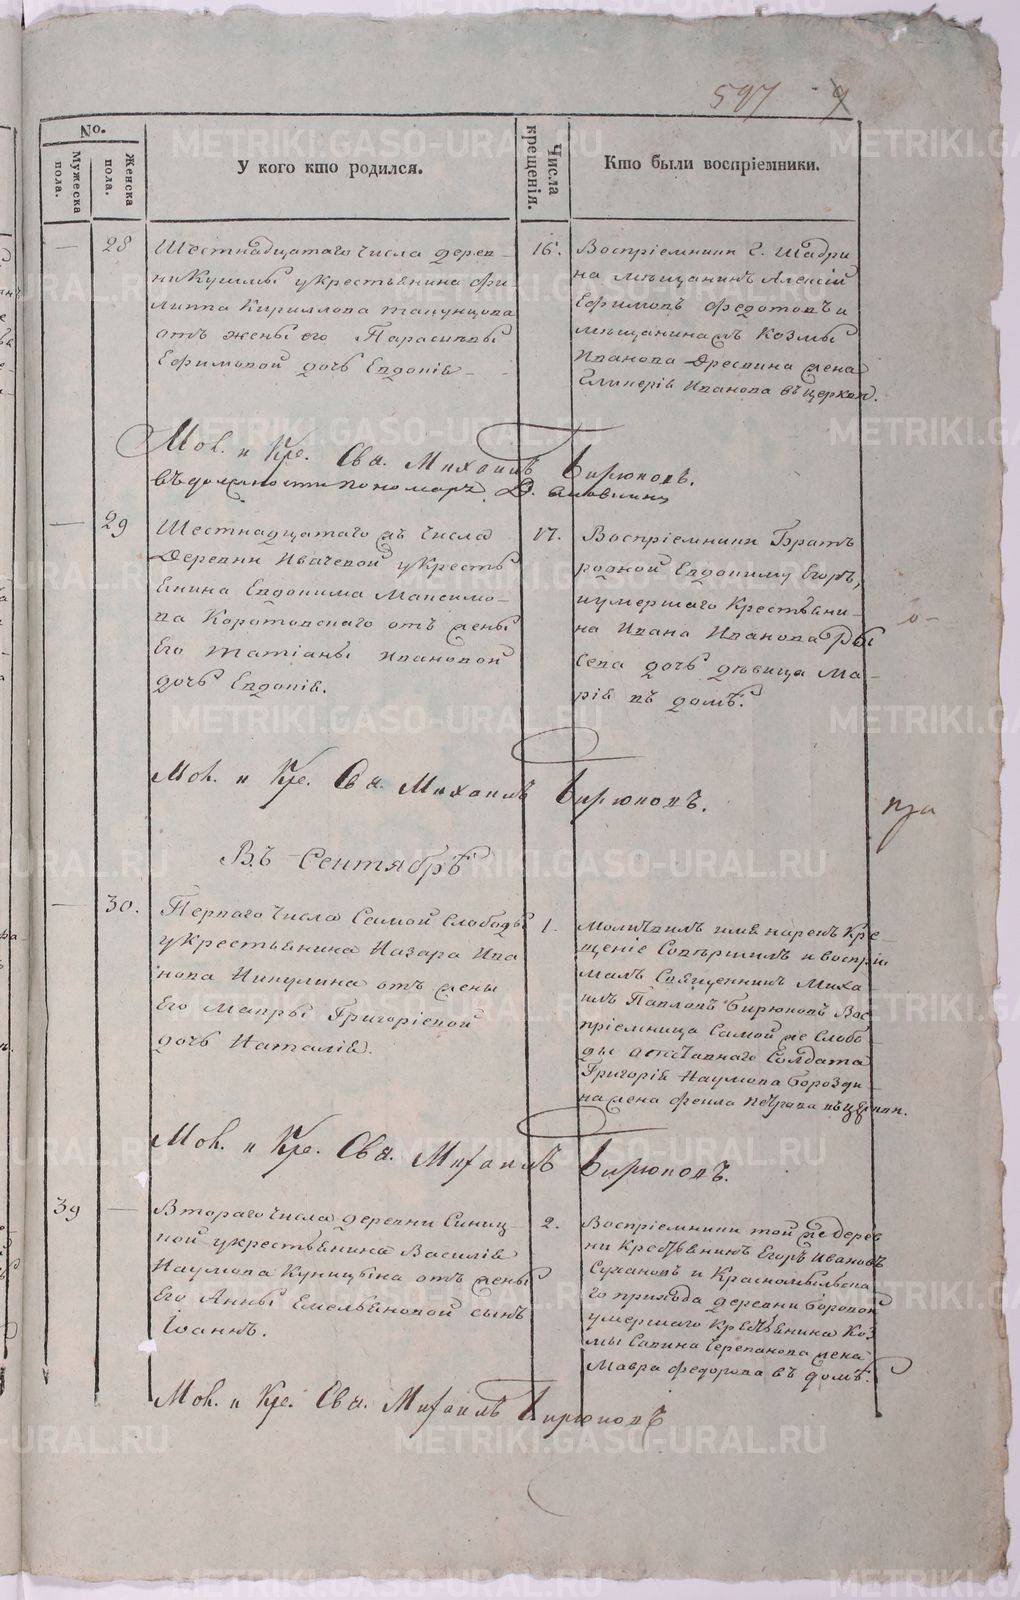 597 9
No.
Мужеска пола.
Женска пола.
У кого кто родился.
Числа крещенія.
Кто были воспріемники.
28
Шестнадцатаго числа дерев
ни Кушмы у крестьянина Фи
липпа Кириллова
отъ жены его Парасковьи
Ефимовой дочь Евдокія
16.
Воспріемники г. Шадри
на мѣщанинъ Алексій
Ефимовъ Федотовъ и
мѣщанина Козмы
Иванова Дрезвина жена
Гликерія Иванова въ церкви.
Мол. и Кре. Свя. Михаилъ Бирюковъ.
въ должности пономаря Д.
29
Шестнадцатаго жъ числа
Деревни Ивачевой у кресть
янина Евдокима Максимо
ва Коротовскаго отъ жены
Его Татіаны Ивановой
дочь Евдокія.
17.
Воспріемники Братъ
родной Евдокиму Егоръ,
и умершаго Крестьяни
на Ивана Иванова Ры
сева дочь дѣвица Ма
рія въ домѣ.
Мол. и Кре. Свя. Михаилъ Бирюковъ.
Въ Сентябрѣ
30.
Перваго числа Самой Слободы
у крестьянина Назара Ива
нова Никулина отъ жены
Его Мавры Григоріевой
дочь Наталія.
1.
Молитвилъ имя нарекъ Кре
щеніе Совершилъ и воспріи
малъ Священникъ Миха
илъ Павловъ Бирюковъ Вос
пріемница Самой же Слобо
ды отставнаго Солдата
Григорія Наумова Борозди
на жена Фекла Петрова въ церкви.
Мол. и Кре. Свя. Михаилъ Бирюковъ.
39
Втораго числа деревни Синиц
ной у крестьянина Василія
Наумова Куницына отъ жены
Его Анны Емельяновой сынъ
Іоаннъ.
2.
Воспріемники той же дерев
ни Крестьянинъ Егоръ Ивановъ
Сучановъ и Красномыльска
го прихода деревни Боровой
умершаго Крестьянина Коз
мы Савина Черепанова жена
Мавра Федорова въ домѣ.
Мол. и Кре. Свя. Михаилъ Бирюковъ
METRIKI.GASO-URAL.RU